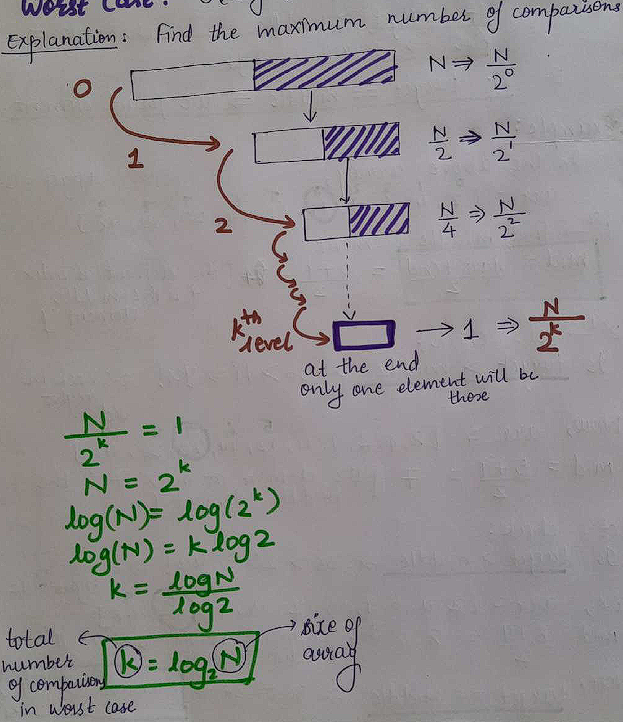 Worst Case:
Explanation: Find the maximum number of comparisons
0 N ⇒ N/2^0
1 N/2 ⇒ N/2^1
2 N/4 ⇒ N/2^2
kth level → 1 ⇒ N/2^k
at the end
only one element will be
those
N/2^k = 1
N = 2^k
log(N) = log(2^k)
log(N) = k log 2
k = log N / log 2
k = log₂ N
total
number
of comparison
in worst case
size of
array